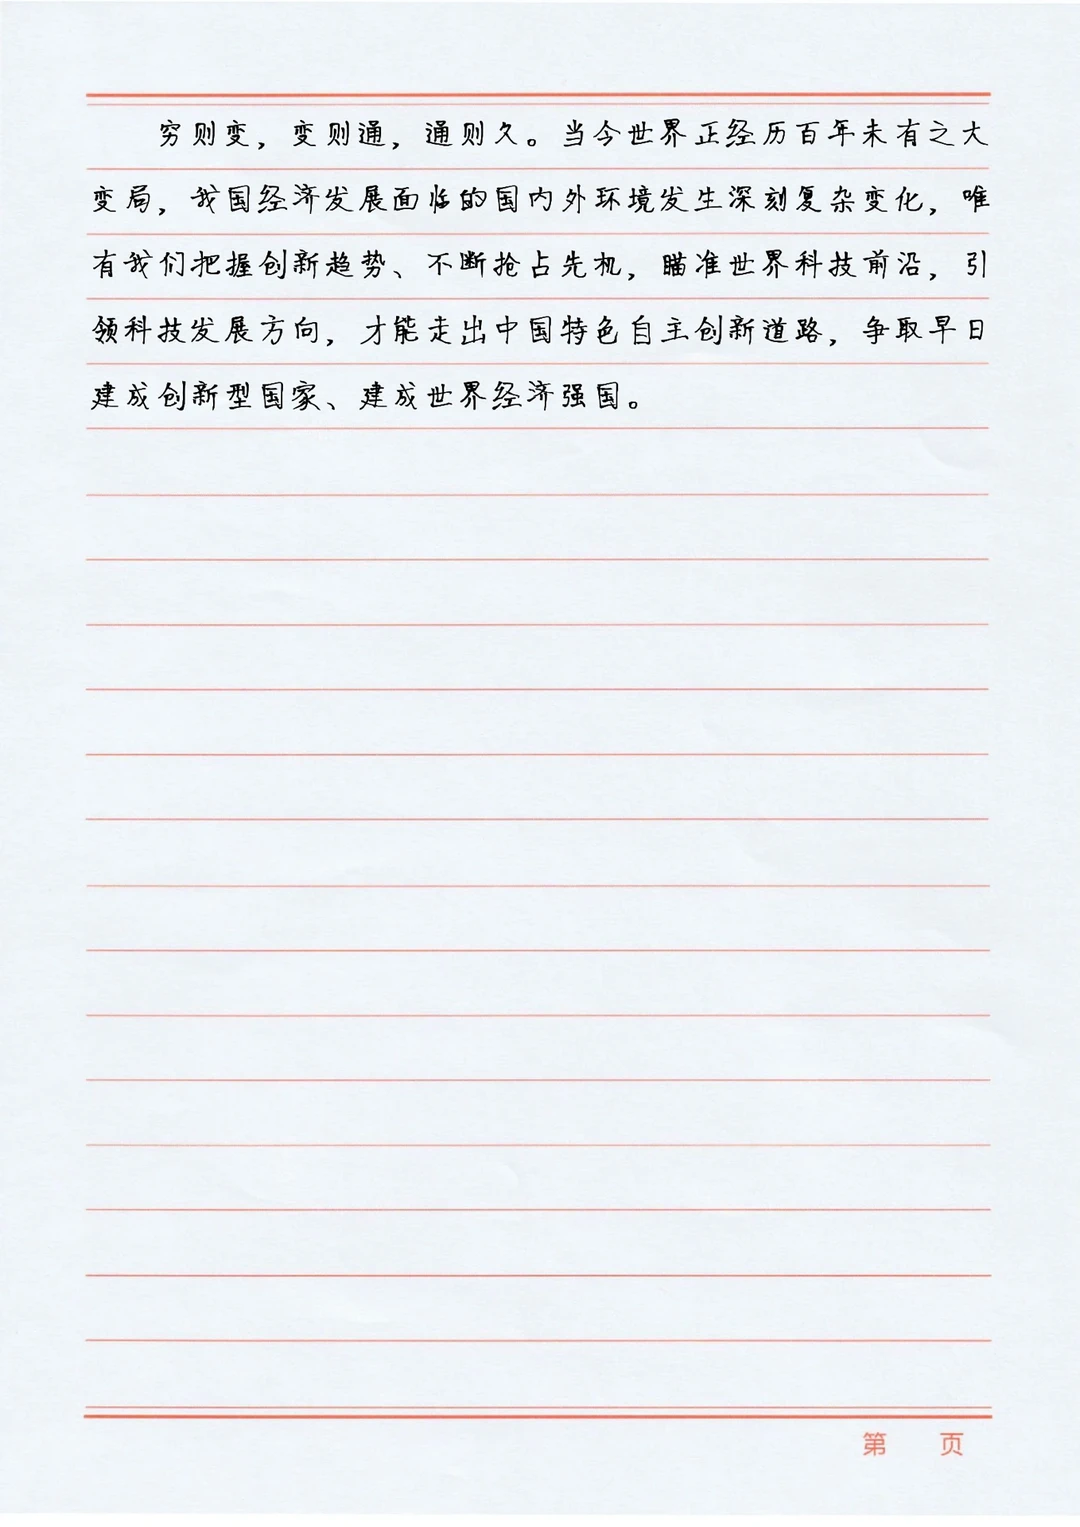 穷则变，变则通，通则久。当今世界正经历百年未有之大
变局，我国经济发展面临的国内外环境发生深刻复杂变化，唯
有我们把握创新趋势、不断抢占先机，瞄准世界科技前沿，引
领科技发展方向，才能走出中国特色自主创新道路，争取早日
建成创新型国家、建成世界经济强国。
第 页